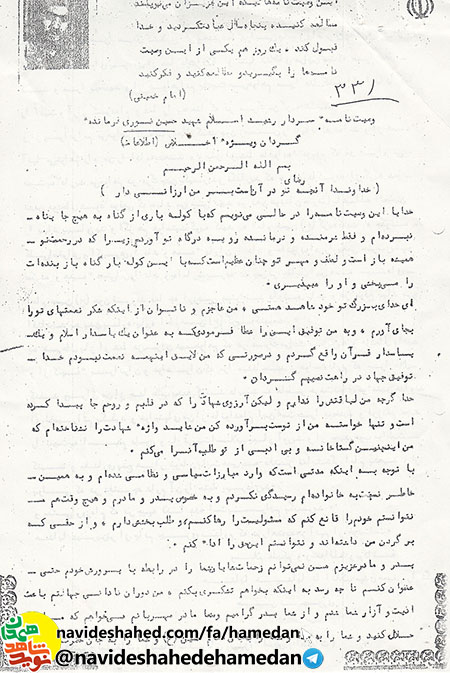 این وصیت نامه‌هائیکه این عزیزان مینویسند
مطالعه کنید پنجاه سال عبادت کردید و خدا
قبول کند ٠ یک روز هم یکی از این وصیت
نامه‌ها را بگیرید و مطالعه کنید و فکر کنید
(امام خمینی)
۳۳۱
وصیت نامه سردار رشید اسلام شهید حسین نوری فرمانده
گردان ویژه اخلاص (اطلاعات)
بسم الله الرحمن الرحیم
(خداوندا آنچه رضای تو در آن است بر من ارزانی دار)
خدایا این وصیت نامه را در حالی می‌نویسم که با کوله باری از گناه به هیچ جا پناه -
نبرده‌ام و فقط شرمنده و درمانده رو بسوی درگاه تو آوردم زیرا که در رحمت تو -
همیشه باز است و لطف و مهر تو چنان عظیم است که با این کوله بار گناه باز بنده‌ات
را می‌بخشی و او را می‌پذیری ٠
ای خدای بزرگ تو خود شاهد هستی ٠ من عاجزم و ناتوان از اینکه شکر نعمتهای تو را
بجای آورم ٠ و به من توفیق این را عطا فرمودی که به عنوان یک پاسدار اسلام و یک -
پاسدار قرآن واقع گردم و در صورتی که من لایق اینهمه نعمت نبودم خدا -
توفیق جهاد در راهت نصیبم گردان ٠
خدا گرچه من لیاقتش را ندارم و لیکن آرزوی شهادت را که در قلبم و روحم جا پیدا کرده
است و تنها خواسته من از توست برآورده کن من شاید واژه شهادت را نشناخته‌ام که
من اینچنین گستاخانه و بی ادبی از تو طلب آنرا می‌کنم ٠
با توجه به اینکه مدتی است که وارد مبارزات سیاسی و نظامی شده‌ام و به همین -
خاطر نتوانسته به خانواده‌ام رسیدگی نکردم و به خصوص پدر و مادرم و هیچ وقت هم -
نتوانستم خودم را قانع کنم که مسئولیت را رها کنم و طلب بخشش دارم ٠ و از حقی که
بر گردن من داشته‌اند و نتوانستم این حق را ادا کنم ٠
پدر و مادر عزیزم من نمی‌توانم زحمت‌های شما را در رابطه با پرورش خودم حتی -
عنوان کنم تا چه رسد به اینکه بخواهم تشکری بکنم ٠ من دوران نادانی جهالتم باعث
اذیت و آزار شما شدم و از شما پدر گرامیم و شما مادر مهربانم می‌خواهم که
حلال کنید و شما را به
navideshahed.com/fa/hamedan
@navideshahedehamedan
نوید شاهد همدان